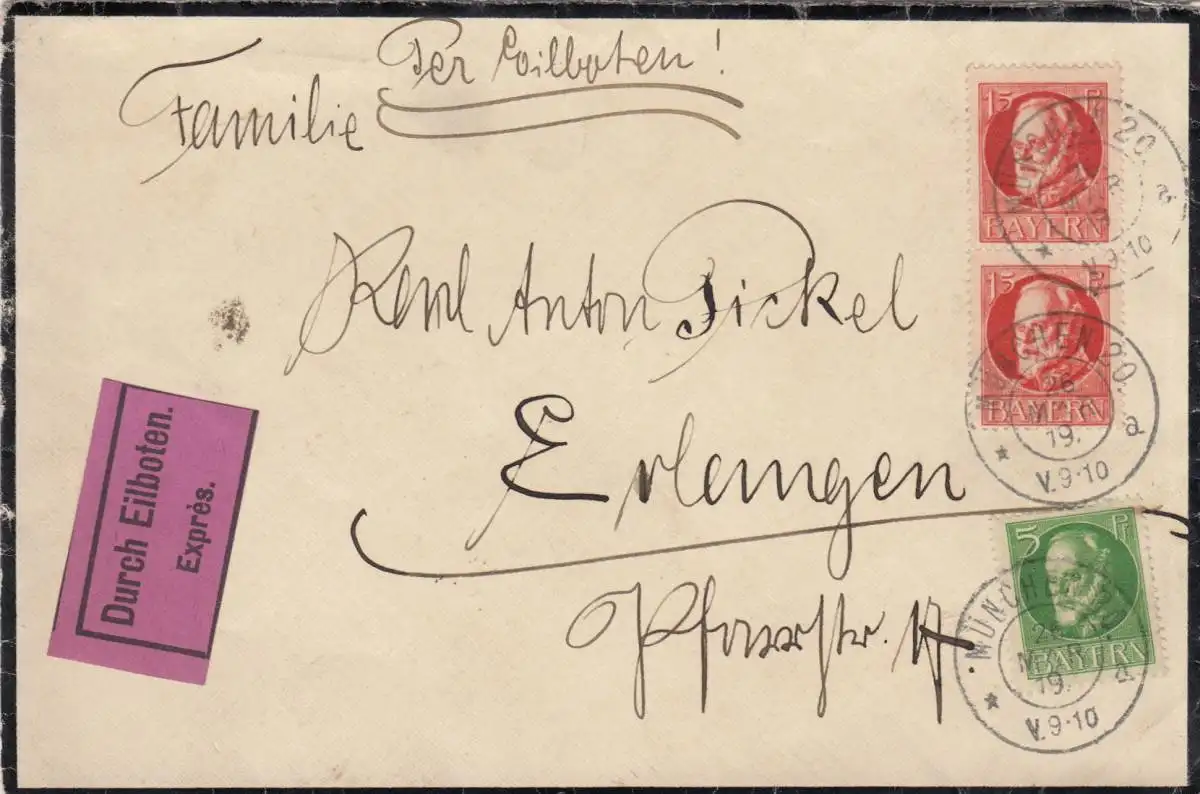 Per Eilboten!
Familie
Karl Anton Pickel
Erlangen
Pfarrstr.
Durch Eilboten.
Exprès.
15 Pf
BAYERN
MÜNCHEN 20.
a
V.9-10
15
BAYERN
MÜNCHEN 20.
26
19.
a
V.9-10
5 Pf
BAYERN
MÜNCHEN
19.
a
V.9-10